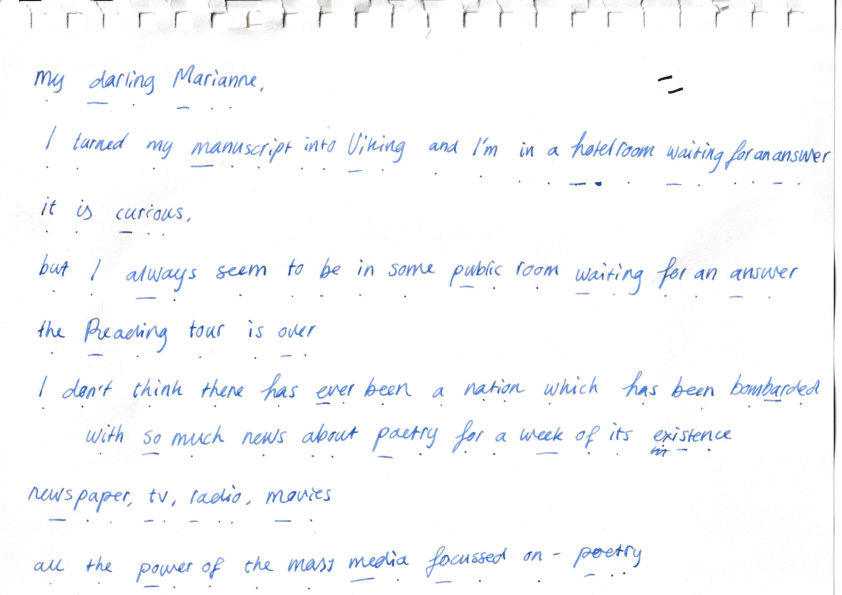 my darling Marianne,
I turned my manuscript into Viking and I'm in a hotelroom waiting for an answer
it is curious,
but I always seem to be in some public room waiting for an answer
the Reading tour is over
I don't think there has ever been a nation which has been bombarded
with so much news about poetry for a week of its existence
newspaper, tv, radio, movies
all the power of the mass media focussed on - poetry